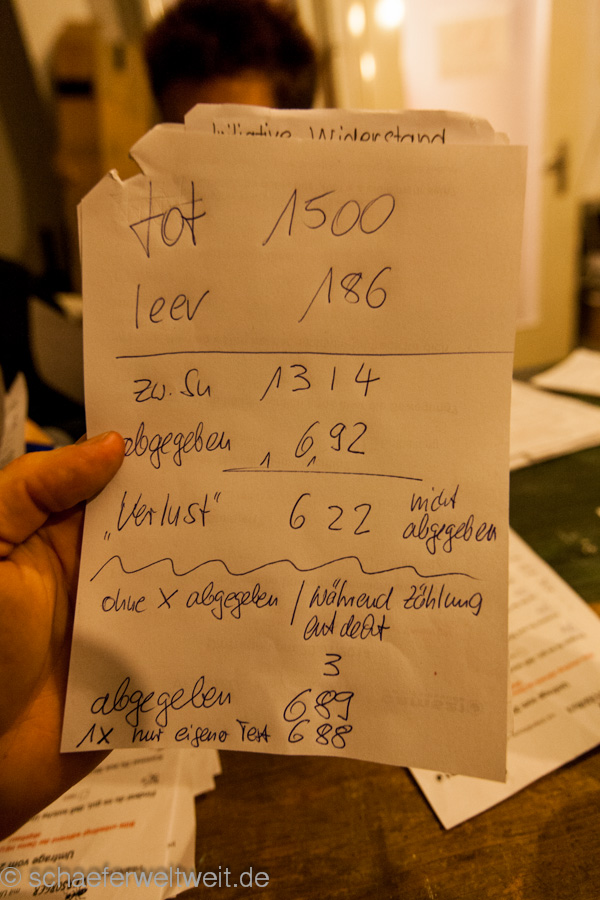 Initiative Widerstand
tot 1500
leer 186
zw. Su 1314
abgegeben 692
1 1
„Verlust" 622 nicht
abgegeben
ohne X abgegeben / während Zählung
entdeckt
3
abgegeben 689
1x nur eigener Text 688
Umfrage vom
© schaeferweltweit.de